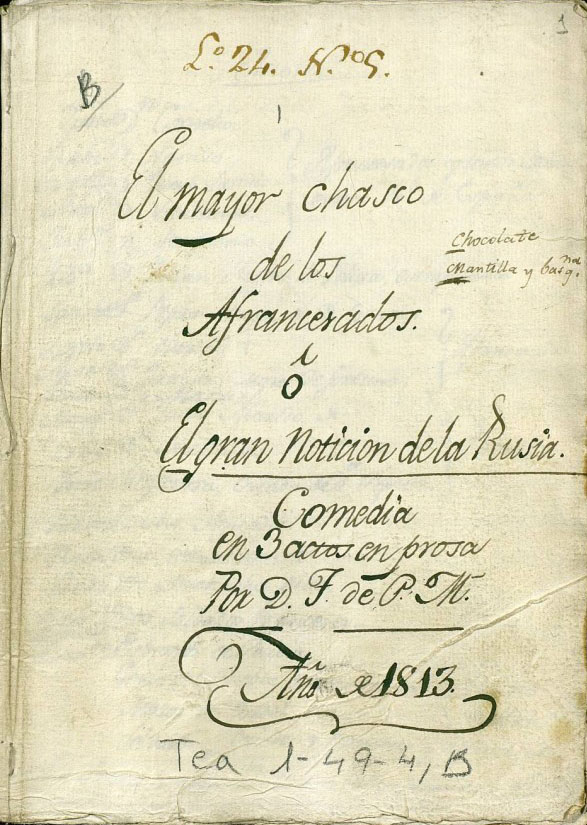 1
Lº 24. Nº 5.
B
El mayor chasco
de los
Afrancesados.
ó
El gran Noticion de la Rusia.
Chocolate
Mantilla y basqna.
Comedia
en 3 actos en prosa
Por D. F. de P. M.
Año de 1813.
Tea 1-49-4, B